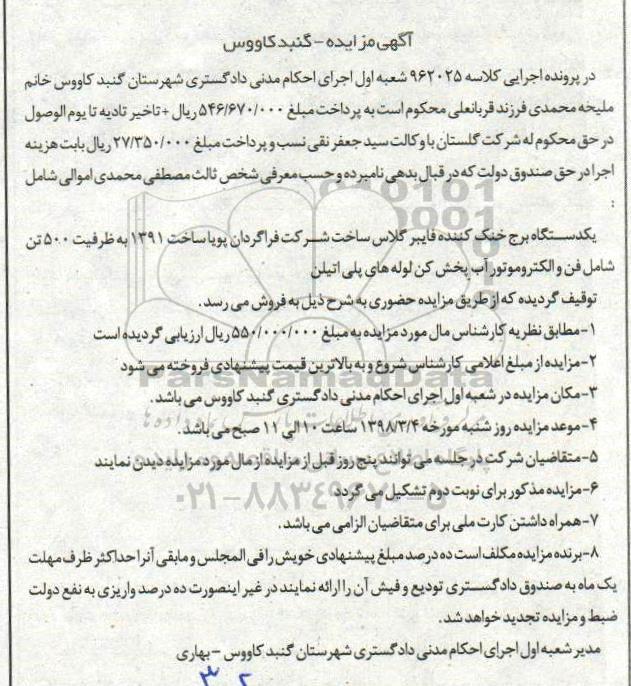 آگهی مزایده - گنبد کاووس
در پرونده اجرایی کلاسه ۹۶۲۰۲۵ شعبه اول اجرای احکام مدنی دادگستری شهرستان گنبد کاووس خانم
ملیحه محمدی فرزند قربانعلی محکوم است به پرداخت مبلغ ۵۴۶/۶۷۰/۰۰۰ ریال + تاخیر تادیه تا یوم الوصول
در حق محکوم له شرکت گلستان با وکالت سید جعفر نقی نسب و پرداخت مبلغ ۲۷/۳۵۰/۰۰۰ ریال بابت هزینه
اجرا در حق صندوق دولت که در قبال بدهی نامبرده و حسب معرفی شخص ثالث مصطفی محمدی اموالی شامل
:
یکدستگاه برج خنک کننده فایبر گلاس ساخت شرکت فراگردان پویا ساخت ۱۳۹۱ به ظرفیت ۵۰۰ تن
شامل فن و الکتروموتور آب پخش کن لوله های پلی اتیلن
توقیف گردیده که از طریق مزایده حضوری به شرح ذیل به فروش می رسد.
۱-مطابق نظریه کارشناس مال مورد مزایده به مبلغ ۵۵۰/۰۰۰/۰۰۰ ریال ارزیابی گردیده است
۲-مزایده از مبلغ اعلامی کارشناس شروع و به بالاترین قیمت پیشنهادی فروخته می شود
۳-مکان مزایده در شعبه اول اجرای احکام مدنی دادگستری گنبد کاووس می باشد.
۴-موعد مزایده روز شنبه مورخه ۱۳۹۸/۳/۴ ساعت ۱۰ الی ۱۱ صبح می باشد.
۵-متقاضیان شرکت در جلسه می توانند پنج روز قبل از مزایده از مال مورد مزایده دیدن نمایند
۶-مزایده مذکور برای نوبت دوم تشکیل می گردد
۷-همراه داشتن کارت ملی برای متقاضیان الزامی می باشد.
۸-برنده مزایده مکلف است ده درصد مبلغ پیشنهادی خویش را فی المجلس و مابقی آنرا حداکثر ظرف مهلت
یک ماه به صندوق دادگستری تودیع و فیش آن را ارائه نمایند در غیر اینصورت ده درصد واریزی به نفع دولت
ضبط و مزایده تجدید خواهد شد.
مدیر شعبه اول اجرای احکام مدنی دادگستری شهرستان گنبد کاووس - بهاری
ParsNamadData
۰۲۱-۸۸۳۴۹۶۷۰-۵